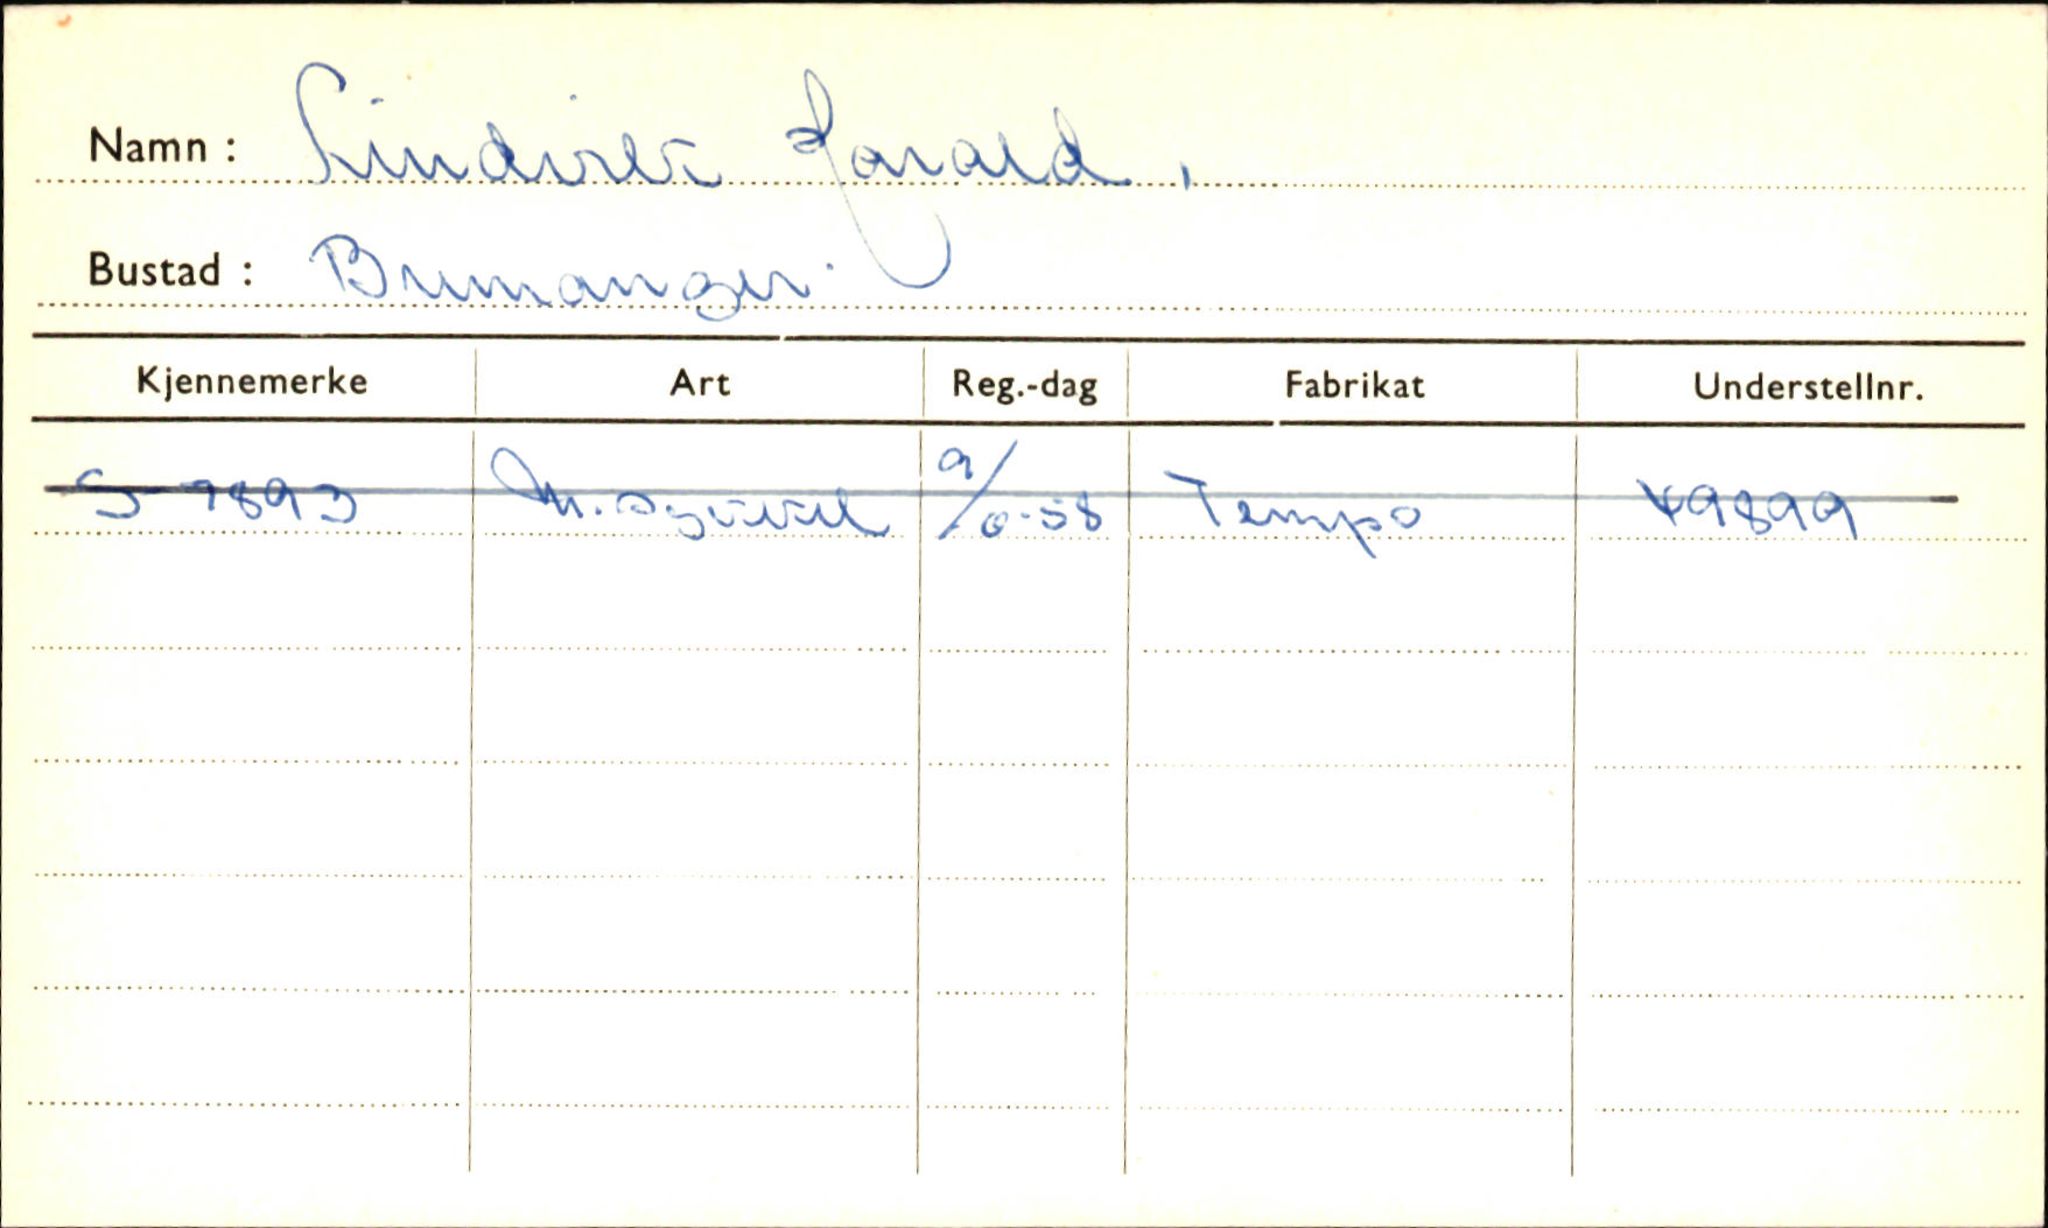 Namn : Lindvik Harald,
Bustad : Bremanger.
Kjennemerke Art Reg.-dag Fabrikat Understellnr.
S-7893 M.sykkel 9/6-58 Tempo 49899